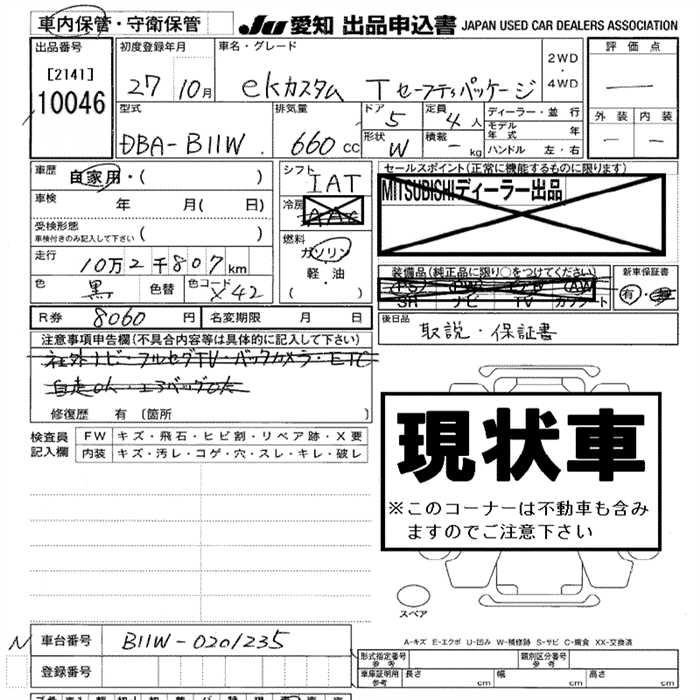 車内保管・守衛保管
JU 愛知 出品申込書 JAPAN USED CAR DEALERS ASSOCIATION
出品番号 初度登録年月 車名・グレード 評価点
[2141]
10046
27 10月 ekカスタム T セーフティパッケージ
2WD
・
4WD
型式 排気量 ドア 5 定員 4 人 ディーラー・並行 外装 内装
モデル年式 年
DBA-B11W 660cc 形状 W 積載 - kg ハンドル 左・右
車歴 自家用・( ) シフト IAT セールスポイント(正常に機能するものに限ります)
車検 年 月( 日) 冷房 AAC MITSUBISHIディーラー出品
受検形態
車検付きのみ記入して下さい ( )
燃料
ガソリン
軽・油
( )
走行 10万2千807km
装備品(純正品に限り○をつけてください) 新車保証書
PS PW AW 有・
SR ナビ TV カセット
色 黒 色替 色コード X42
後日品 取説・保証書
R券 8060円 名変期限 月 日
注意事項申告欄(不具合内容等は具体的に記入して下さい)
社外ナビ・フルセグTV・バックカメラ・ETC
自走ok・エアバッグOK
修復歴 有 〔箇所 〕
検査員記入欄 FW キズ・飛石・ヒビ割・リペア跡・X要
内装 キズ・汚レ・コゲ・穴・スレ・キレ・破レ
現状車
※このコーナーは不動車も含み
ますのでご注意下さい
スペア
A-キズ E-エクボ U-凹み W-補修跡 S-サビ C-腐食 XX-交換済
N 車台番号 B11W-0201235
形式指定番号 参考 類別区分番号 参考
登録番号
車庫証明用 参考 長さ cm 幅 cm 高さ cm